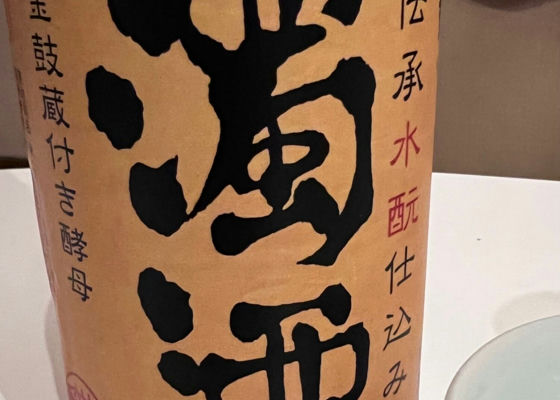 伝承水酛仕込み
濁酒
金鼓蔵付き酵母